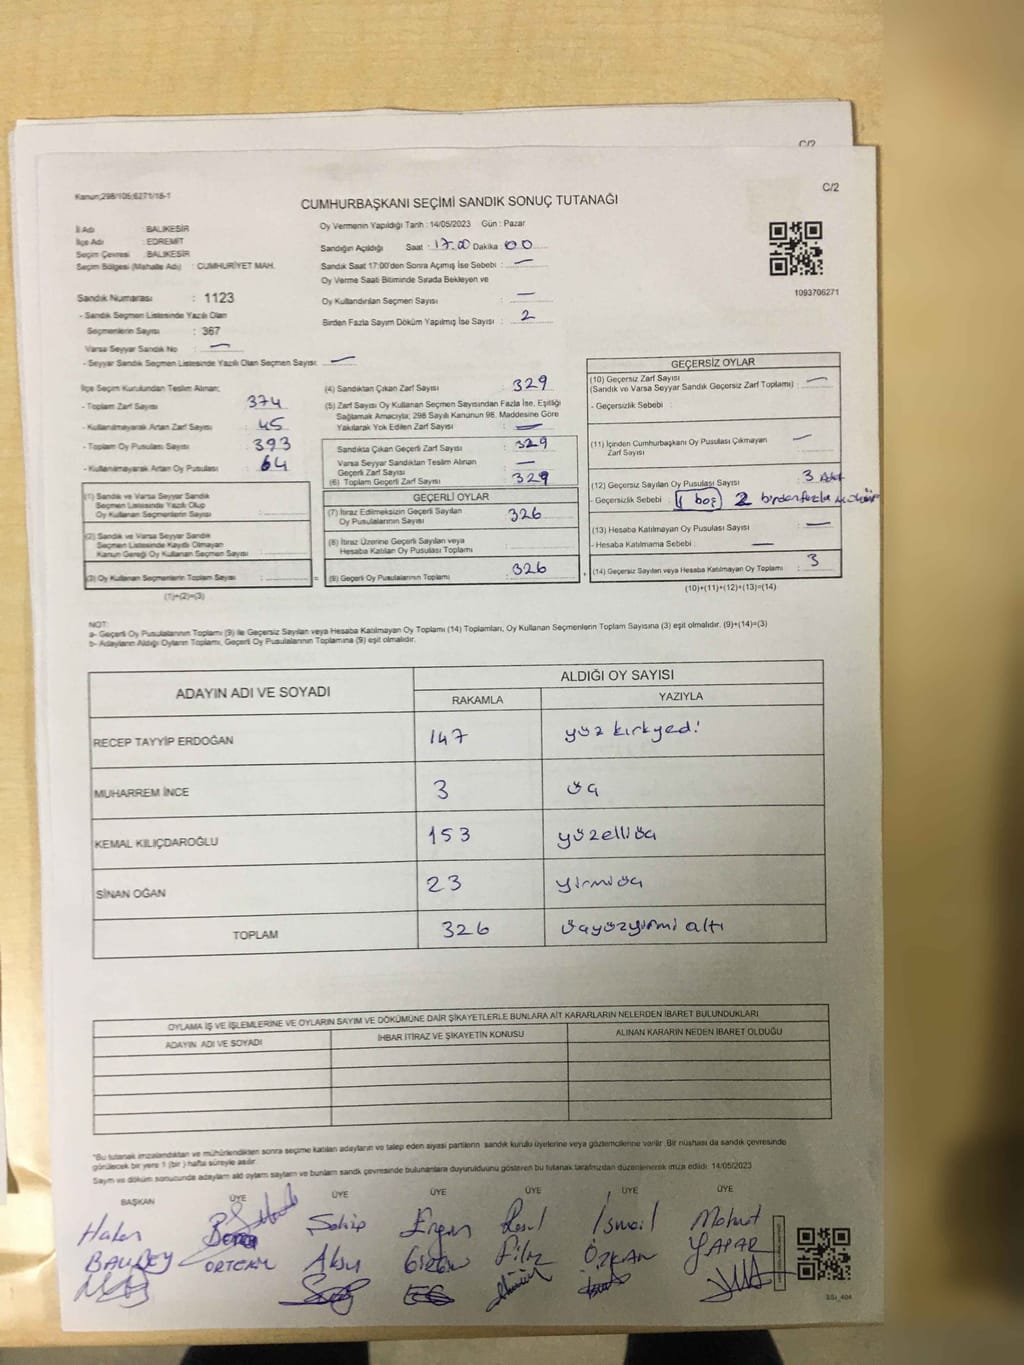 C/2
Kanun;298/105;6271/18-1
C/2
CUMHURBAŞKANI SEÇİMİ SANDIK SONUÇ TUTANAĞI
İl Adı : BALIKESİR
İlçe Adı : EDREMİT
Seçim Çevresi : BALIKESİR
Seçim Bölgesi (Mahalle Adı) : CUMHURİYET MAH.
Sandık Numarası : 1123
- Sandık Seçmen Listesinde Yazılı Olan
Seçmenlerin Sayısı : 367
Varsa Seyyar Sandık No : —
- Seyyar Sandık Seçmen Listesinde Yazılı Olan Seçmen Sayısı: —
Oy Vermenin Yapıldığı Tarih : 14/05/2023 Gün : Pazar
Sandığın Açıldığı Saat : 17.00 Dakika : 00
Sandık Saat 17:00'den Sonra Açımış İse Sebebi : —
Oy Verme Saati Bitiminde Sırada Bekleyen ve
Oy Kullandırılan Seçmen Sayısı : —
Birden Fazla Sayım Döküm Yapılmış İse Sayısı : 2
1093706271
İlçe Seçim Kurulundan Teslim Alınan;
- Toplam Zarf Sayısı : 374
- Kullanılmayarak Artan Zarf Sayısı : 45
- Toplam Oy Pusulası Sayısı : 393
- Kullanılmayarak Artan Oy Pusulası : 64
(1) Sandık ve Varsa Seyyar Sandık
Seçmen Listesinde Yazılı Olup
Oy Kullanan Seçmenlerin Sayısı :
(2) Sandık ve Varsa Seyyar Sandık
Seçmen Listesinde Kayıtlı Olmayan
Kanun Gereği Oy Kullanan Seçmen Sayısı :
(3) Oy Kullanan Seçmenlerin Toplam Sayısı :
(1)+(2)=(3)
(4) Sandıktan Çıkan Zarf Sayısı : 329
(5) Zarf Sayısı Oy Kullanan Seçmen Sayısından Fazla İse, Eşitliği
Sağlamak Amacıyla; 298 Sayılı Kanunun 98. Maddesine Göre
Yakılarak Yok Edilen Zarf Sayısı : —
Sandıkta Çıkan Geçerli Zarf Sayısı : 329
Varsa Seyyar Sandıktan Teslim Alınan
Geçerli Zarf Sayısı : —
(6) Toplam Geçerli Zarf Sayısı : 329
GEÇERLİ OYLAR
(7) İtiraz Edilmeksizin Geçerli Sayılan
Oy Pusulalarının Sayısı : 326
(8) İtiraz Üzerine Geçerli Sayılan veya
Hesaba Katılan Oy Pusulası Toplamı :
= (9) Geçerli Oy Pusulalarının Toplamı : 326 +
GEÇERSİZ OYLAR
(10) Geçersiz Zarf Sayısı
(Sandık ve Varsa Seyyar Sandık Geçersiz Zarf Toplamı) : —
- Geçersizlik Sebebi :
(11) İçinden Cumhurbaşkanı Oy Pusulası Çıkmayan
Zarf Sayısı : —
(12) Geçersiz Sayılan Oy Pusulası Sayısı : 3 Adet
- Geçersizlik Sebebi : 1 boş 2 birden fazla mühür
(13) Hesaba Katılmayan Oy Pusulası Sayısı : —
- Hesaba Katılmama Sebebi : —
(14) Geçersiz Sayılan veya Hesaba Katılmayan Oy Toplamı : 3
(10)+(11)+(12)+(13)=(14)
NOT:
a- Geçerli Oy Pusulalarının Toplamı (9) ile Geçersiz Sayılan veya Hesaba Katılmayan Oy Toplamı (14) Toplamları, Oy Kullanan Seçmenlerin Toplam Sayısına (3) eşit olmalıdır. (9)+(14)=(3)
b- Adayların Aldığı Oyların Toplamı, Geçerli Oy Pusulalarının Toplamına (9) eşit olmalıdır.
ADAYIN ADI VE SOYADI ALDIĞI OY SAYISI
RAKAMLA YAZIYLA
RECEP TAYYİP ERDOĞAN 147 yüz kırkyedi
MUHARREM İNCE 3 üç
KEMAL KILIÇDAROĞLU 153 yüzelliüç
SİNAN OĞAN 23 yirmiüç
TOPLAM 326 üçyüzyirmi altı
OYLAMA İŞ VE İŞLEMLERİNE VE OYLARIN SAYIM VE DÖKÜMÜNE DAİR ŞİKAYETLERLE BUNLARA AİT KARARLARIN NELERDEN İBARET BULUNDUKLARI
ADAYIN ADI VE SOYADI İHBAR İTİRAZ VE ŞİKAYETİN KONUSU ALINAN KARARIN NEDEN İBARET OLDUĞU
*Bu tutanak imzalandıktan ve mühürlendikten sonra seçime katılan adayların ve talep eden siyasi partilerin sandık kurulu üyelerine veya gözlemcilerine verilir .Bir nüshası da sandık çevresinde
görülecek bir yere 1 (bir ) hafta süreyle asılır.
Sayım ve döküm sonucunda adayların ald oyların sayların ve bunların sandk çevresinde bulunanlara duyurulduunu gösteren bu tutanak tarafmızdan düzenlenerek imza edildi. 14/05/2023
BAŞKAN ÜYE ÜYE ÜYE ÜYE ÜYE ÜYE
Hakan Bora Sahip Ergun Resul İsmail Mahmut
ORTEKİN Aksu Filiz ÖZKAN YAPAR